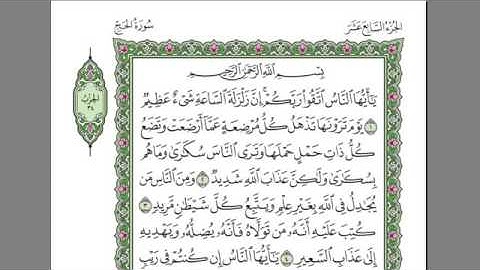 سُورَةُ الحَجِّ
الجُزءُ السَّابِعَ عَشَرَ
الحِزْبُ
٣٤
بِسْمِ اللَّهِ الرَّحْمَٰنِ الرَّحِيمِ
يَٰٓأَيُّهَا النَّاسُ اتَّقُوا۟ رَبَّكُمْ ۚ إِنَّ زَلْزَلَةَ السَّاعَةِ شَىْءٌ عَظِيمٌ
١ يَوْمَ تَرَوْنَهَا تَذْهَلُ كُلُّ مُرْضِعَةٍ عَمَّآ أَرْضَعَتْ وَتَضَعُ
كُلُّ ذَاتِ حَمْلٍ حَمْلَهَا وَتَرَى النَّاسَ سُكَٰرَىٰ وَمَا هُم
بِسُكَٰرَىٰ وَلَٰكِنَّ عَذَابَ اللَّهِ شَدِيدٌ ٢ وَمِنَ النَّاسِ مَن
يُجَٰدِلُ فِى اللَّهِ بِغَيْرِ عِلْمٍ وَيَتَّبِعُ كُلَّ شَيْطَٰنٍ مَّرِيدٍ ٣
كُتِبَ عَلَيْهِ أَنَّهُۥ مَن تَوَلَّاهُ فَأَنَّهُۥ يُضِلُّهُۥ وَيَهْدِيهِ
إِلَىٰ عَذَابِ السَّعِيرِ ٤ يَٰٓأَيُّهَا النَّاسُ إِن كُنتُمْ فِى رَيْبٍ